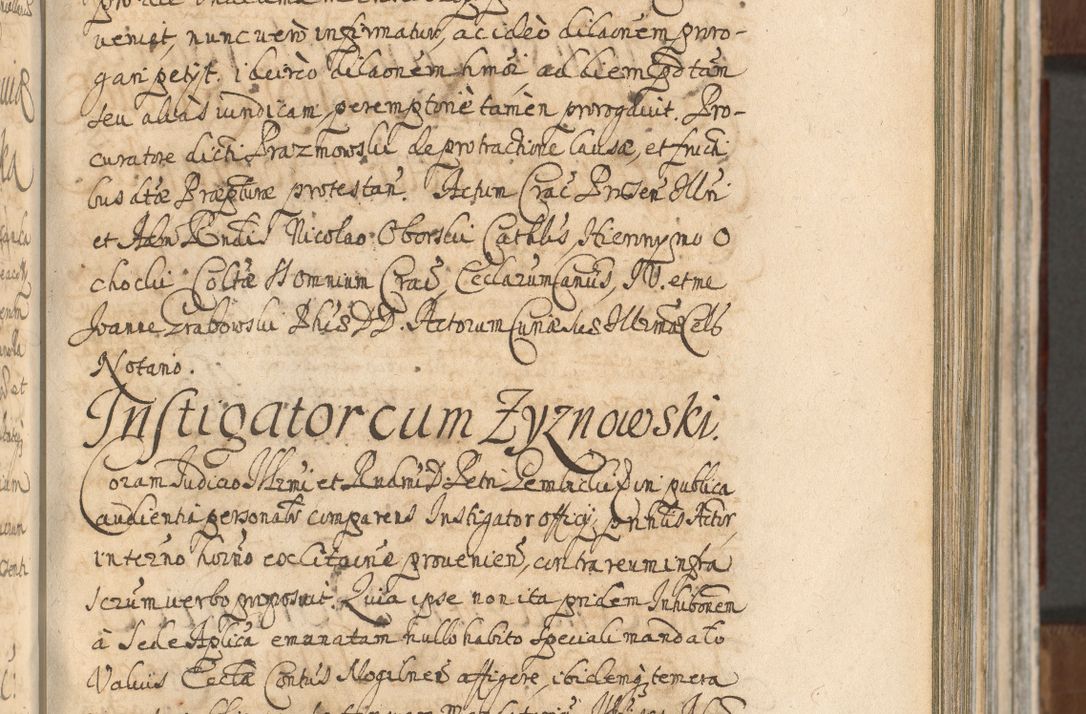 venist, nunc vero infirmatur, ac ideo dilaonem proro-
gari petyt. idcirco dilaonem hmoi ad diem tam
seu alias iuridicam peremptorie tamen prorogavit. Pro-
curatore dicti Prazmowski de protractione causæ, et fructi
bus dtæ Præpturæ protestan. Actum Crac Præsen Illri
et Adm Rndis Nicolao Oborski Cathlis, Hieronymo O
chocki Coltæ SS Omnium Crac, Ecclarum Canus, IV. et me
Joanne Grabowski Phiæ DD. Actorum Curiæ sus Illrmæ Cels
Notario.
Instigator cum Żyznowski.
Coram Iudicio Illrmi et Rndmi D Petri Gembicki Dni publica
audientia personals comparens Instigator officij, pnntis Actor,
interno horno ex citaone provenien, contra reum infra
scrum verbo proposuit. Quia ipse non ita pridem Inhibonem
à Sede Aplica emanatam nullo habito speciali mandato
Valvis Ecclæ Contus Mogilnen affigere, ibidemq temera